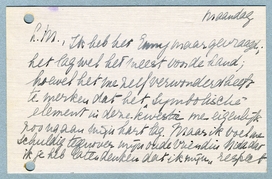 Maandag
L.M., Ik heb het Emmy maar gevraagd,
het lag wel het meest voor de hand;
hoewel het me zelf verwonderd heeft
te merken dat het symbolische
element in deze kwestie me eigenlijk
zoo na aan mijn hart lag. Maar ik voel me
schuldig tegenover mijn oude vriendin
ik je heb laten denken dat ik mijn respect